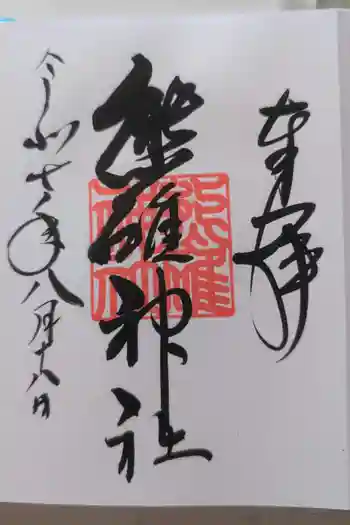 奉拝
熊碓神社
令和七年八月十八日